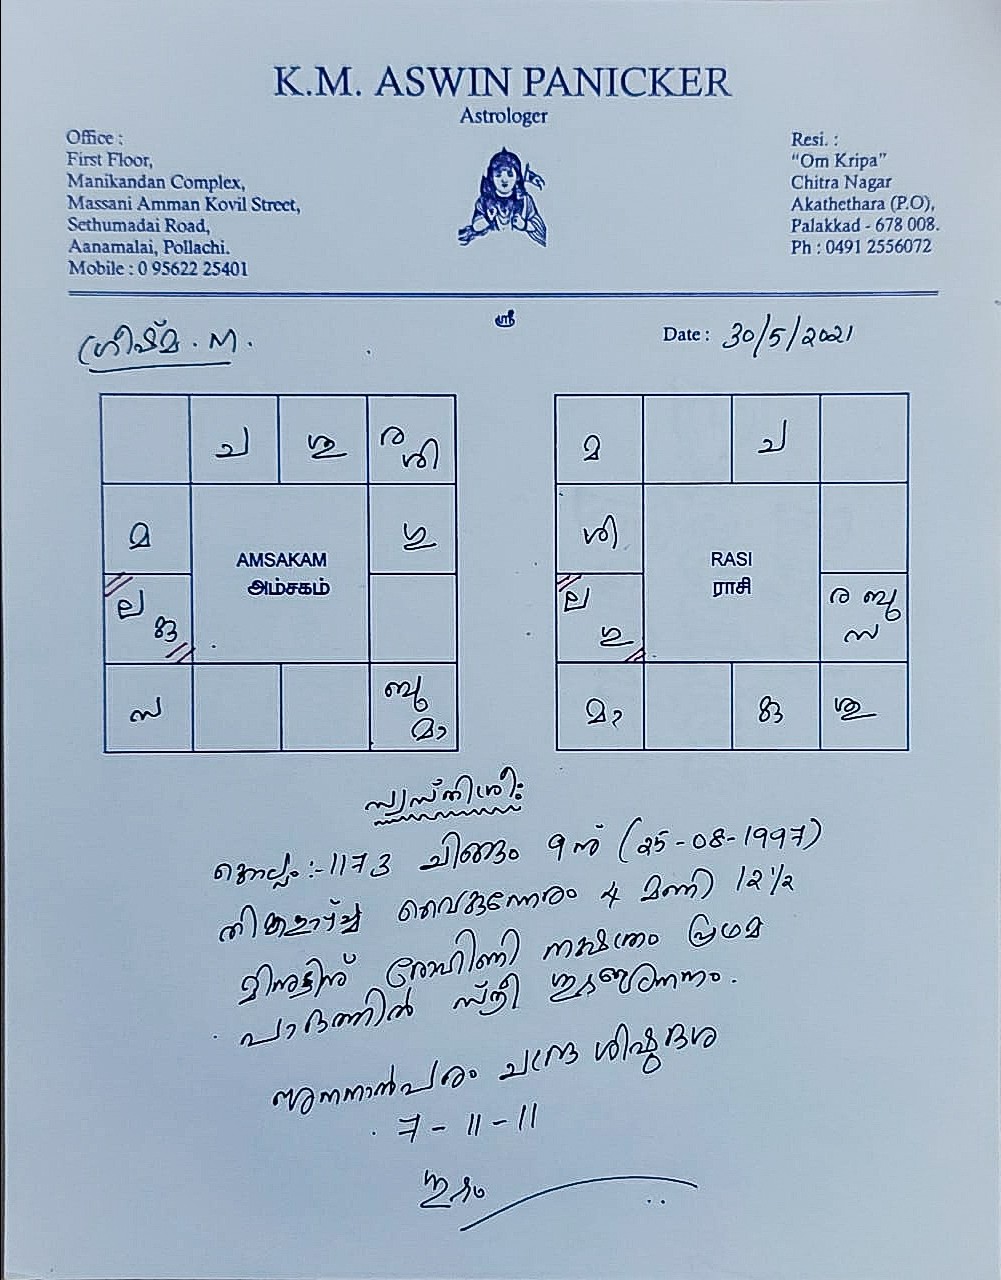 K.M. ASWIN PANICKER
Astrologer
Office :
First Floor,
Manikandan Complex,
Massani Amman Kovil Street,
Sethumadai Road,
Aanamalai, Pollachi.
Mobile : 0 95622 25401
Resi. :
"Om Kripa"
Chitra Nagar
Akathethara (P.O),
Palakkad - 678 008.
Ph : 0491 2556072
ശ്രീ
ഗ്രീഷ്മ . M .
Date : 30/5/2021
ച ശു ര ശി
മ ഗു
AMSAKAM
அம்சகம்
ല കു
സ ബു മാ
മ ച
ശി
RASI
ராசி
ല ഗു ര ബു സ
മാ കു ശു
സ്വസ്തിശ്രീഃ
കൊല്ലം :- 1173 ചിങ്ങം 9ന് (25-08-1997)
തിങ്കളാഴ്ച വൈകുന്നേരം 4 മണി 12½
മിനുട്ടിന് രോഹിണി നക്ഷത്രം പ്രഥമ
പാദത്തിൽ സ്ത്രീ .
ജനനാൽപരം ചന്ദ്ര ശിഷ്ടദശ
7 - 11 - 11
ശുഭം